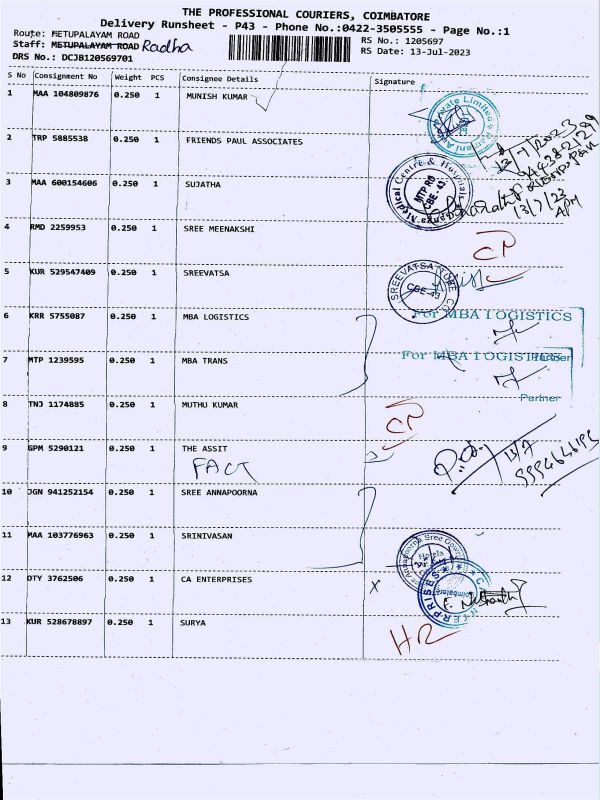 THE PROFESSIONAL COURIERS, COIMBATORE
Delivery Runsheet - P43 - Phone No.:0422-3505555 - Page No.:1
Route: METUPALAYAM ROAD
RS No.: 1205697
Staff: METUPALAYAM ROAD Radha
RS Date: 13-Jul-2023
DRS No.: DCJB120569701
S No Consignment No Weight PCS Consignee Details Signature
1 MAA 104809876 0.250 1 MUNISH KUMAR
2 TRP 5885538 0.250 1 FRIENDS PAUL ASSOCIATES
13/7/2023
3 MAA 600154606 0.250 1 SUJATHA
Medical Centre & Hospital
MTP RD
CBE - 43
13/7/23
4 RMD 2259953 0.250 1 SREE MEENAKSHI
CP
5 KUR 529547409 0.250 1 SREEVATSA
SREEVATSA
CBE-43
6 KRR 5755087 0.250 1 MBA LOGISTICS
For MBA LOGISTICS
Partner
7 MTP 1239595 0.250 1 MBA TRANS
For MBA LOGISTICS
Partner
8 TNJ 1174885 0.250 1 MUTHU KUMAR
CP
9 GPM 5290121 0.250 1 THE ASSIT
FACT
13/7
10 JGN 941252154 0.250 1 SREE ANNAPOORNA
11 MAA 103776963 0.250 1 SRINIVASAN
12 DTY 3762506 0.250 1 CA ENTERPRISES
x
CA ENTERPRISES
Coimbatore
13 KUR 528678897 0.250 1 SURYA
HR